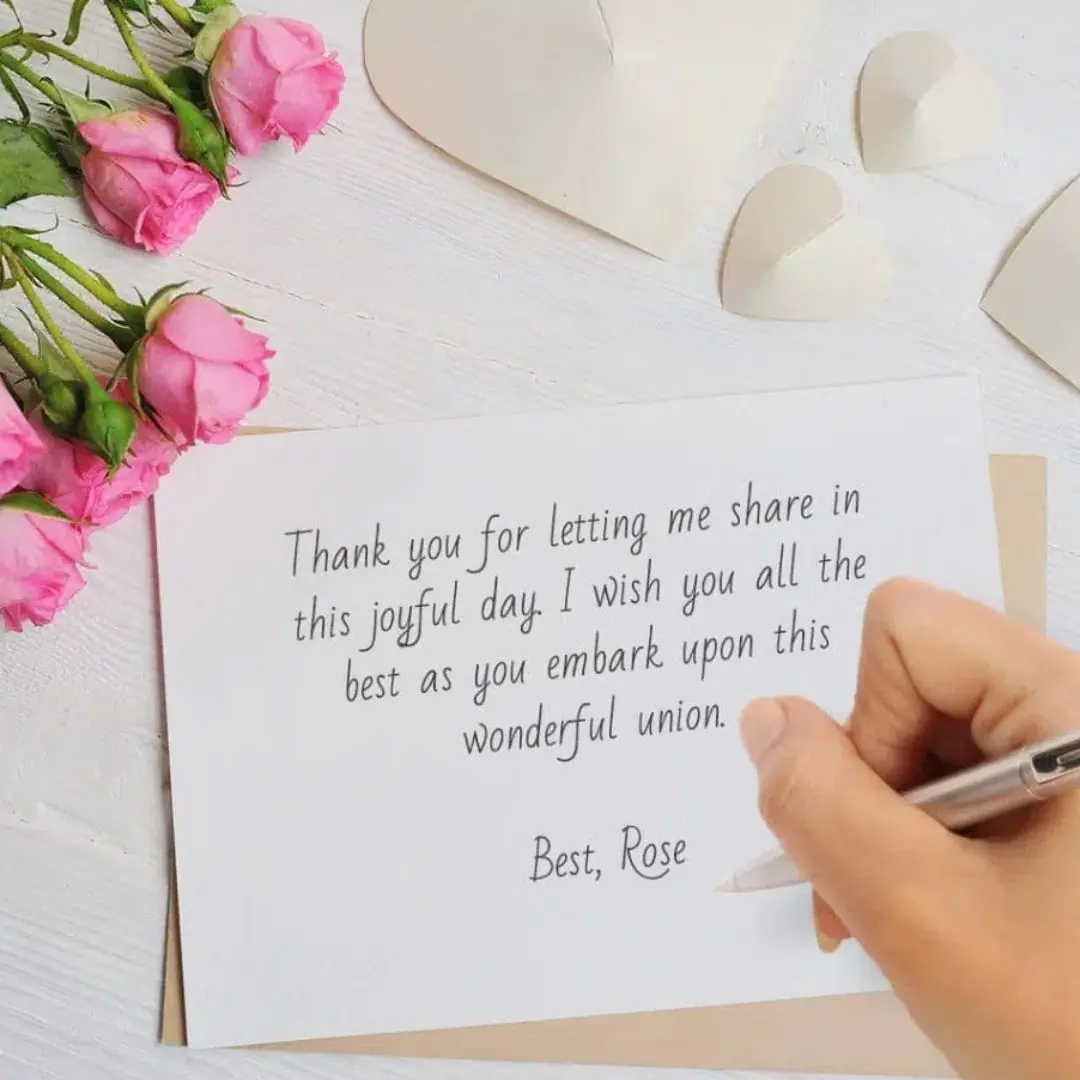 Thank you for letting me share in
this joyful day. I wish you all the
best as you embark upon this
wonderful union.
Best, Rose